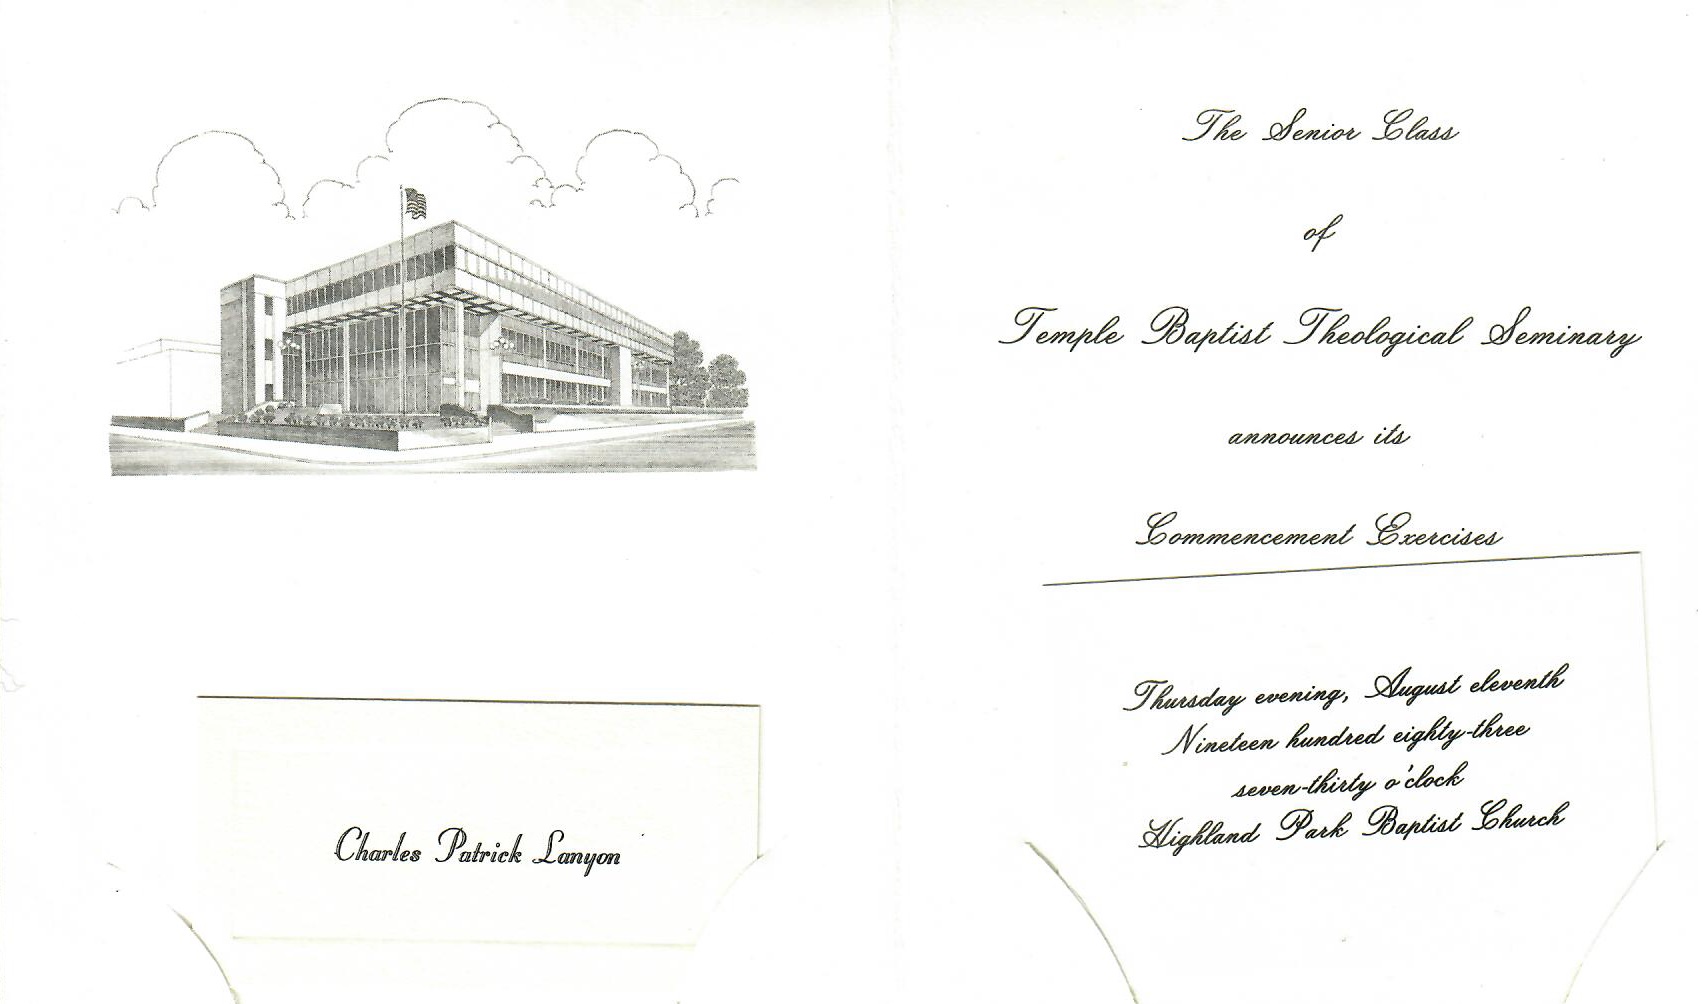 The Senior Class
of
Temple Baptist Theological Seminary
announces its
Commencement Exercises
Thursday evening, August eleventh
Nineteen hundred eighty-three
seven-thirty o'clock
Highland Park Baptist Church
Charles Patrick Lanyon